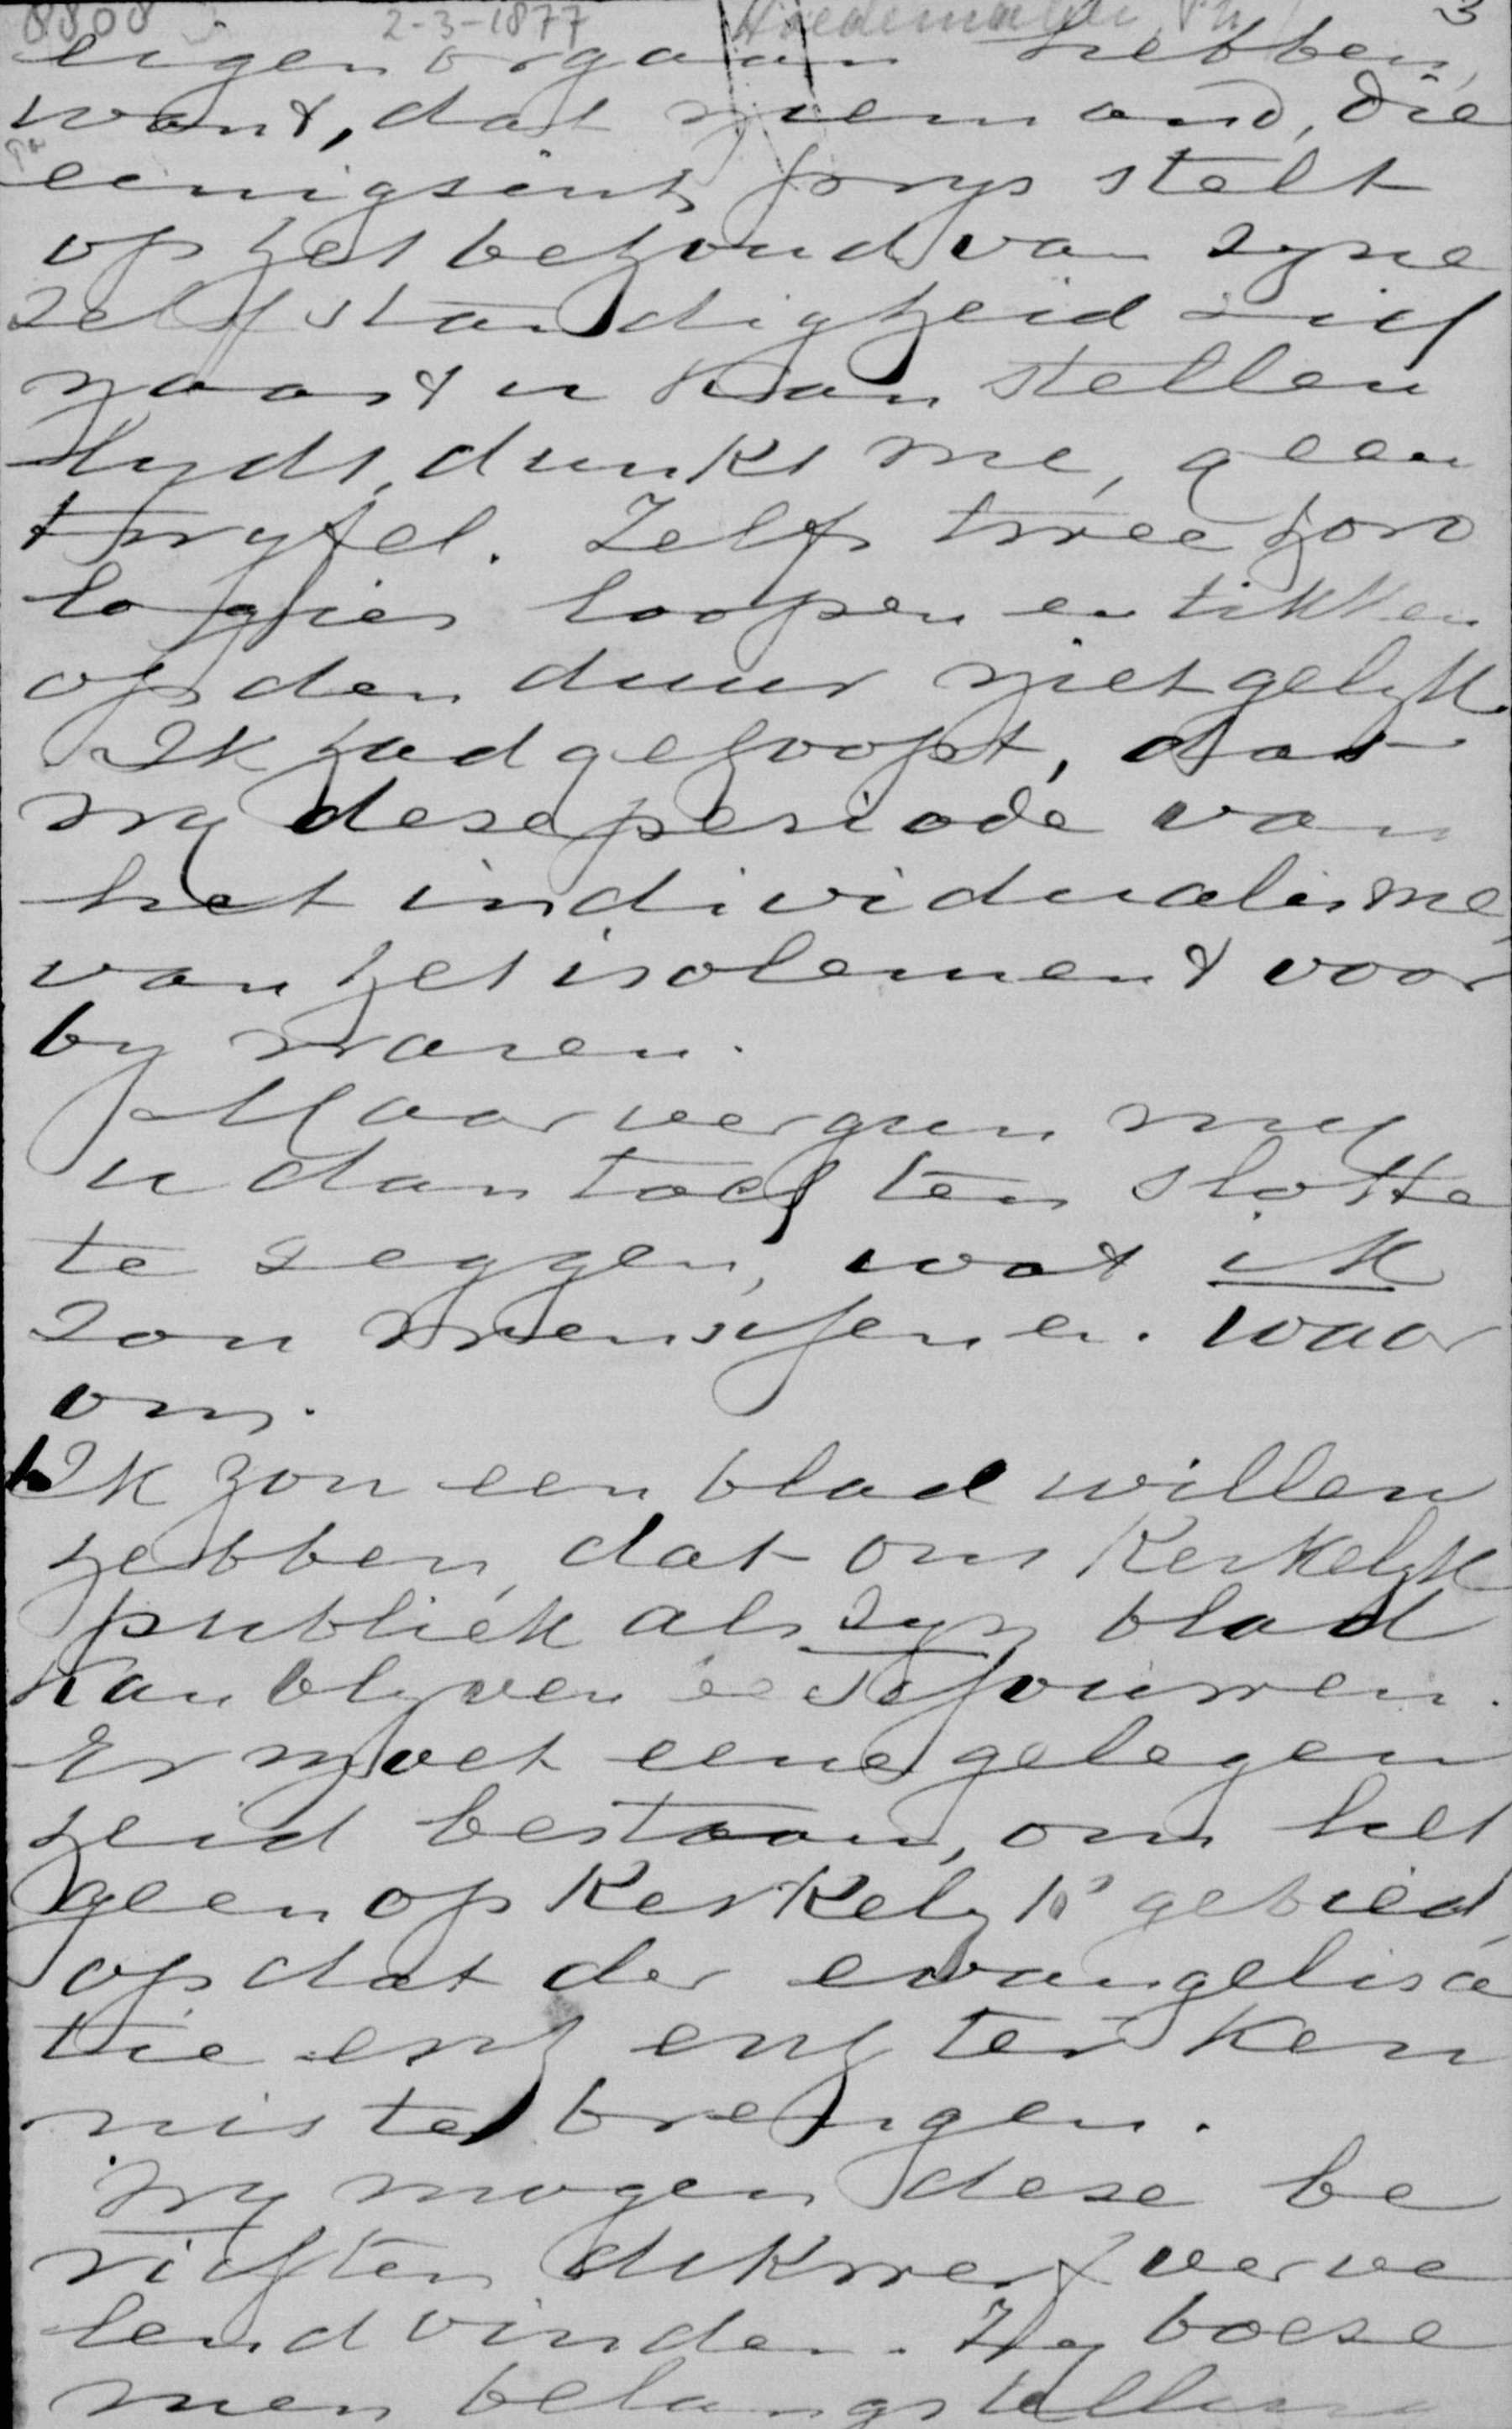 8808 2-3-1877 Hoedemaker, Ph 3
eigen orgaan hebben,
want, dat niemand, die
eenigsints prys stelt
op het behoud van zyne
zelfstandigheid zich
naast u kan stellen
lydt, dunkt me, geen
twyfel. Zelfs twee horo
logies loopen en tikken
op den duur niet gelyk.
Ik had gehoopt, dat
wy deze periode van
het individualisme,
van het isolement voor
by waren.
Maar vergun my
u dan toch ten slotte
te zeggen, wat ik
zou wenschen en. waar
om.
1. Ik zou een blad willen
hebben, dat ons Kerkelyk
publiek als zyn blad
kan blyven beschouwen.
Er moet eene gelegen
heid bestaan, om het
geen op Kerkelyk gebied,
op dat der evangelisa
tie enz enz ter ken
nis te brengen.
Wy mogen deze be
richten dikwerf verve
lend vinden. Zy boeze
men belangstelling